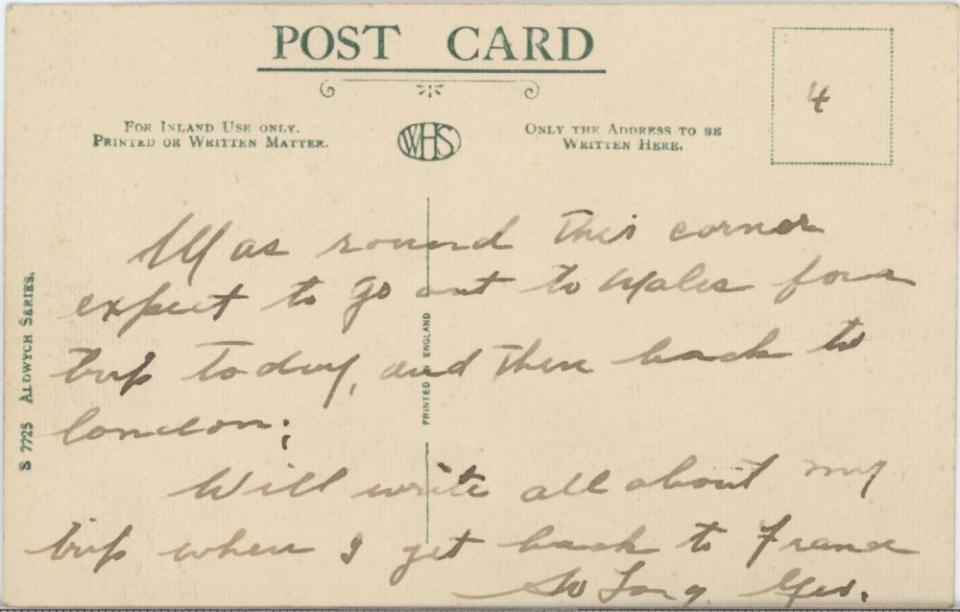 POST CARD
4
FOR INLAND USE ONLY.
PRINTED OR WRITTEN MATTER.
WHS
ONLY THE ADDRESS TO BE
WRITTEN HERE.
Was round this corner
expect to go out to Wales for a
trip today, and then back to
London;
Will write all about my
trip when I get back to France
So Long Geo.
S 7725 ALDWYCH SERIES.
PRINTED IN ENGLAND